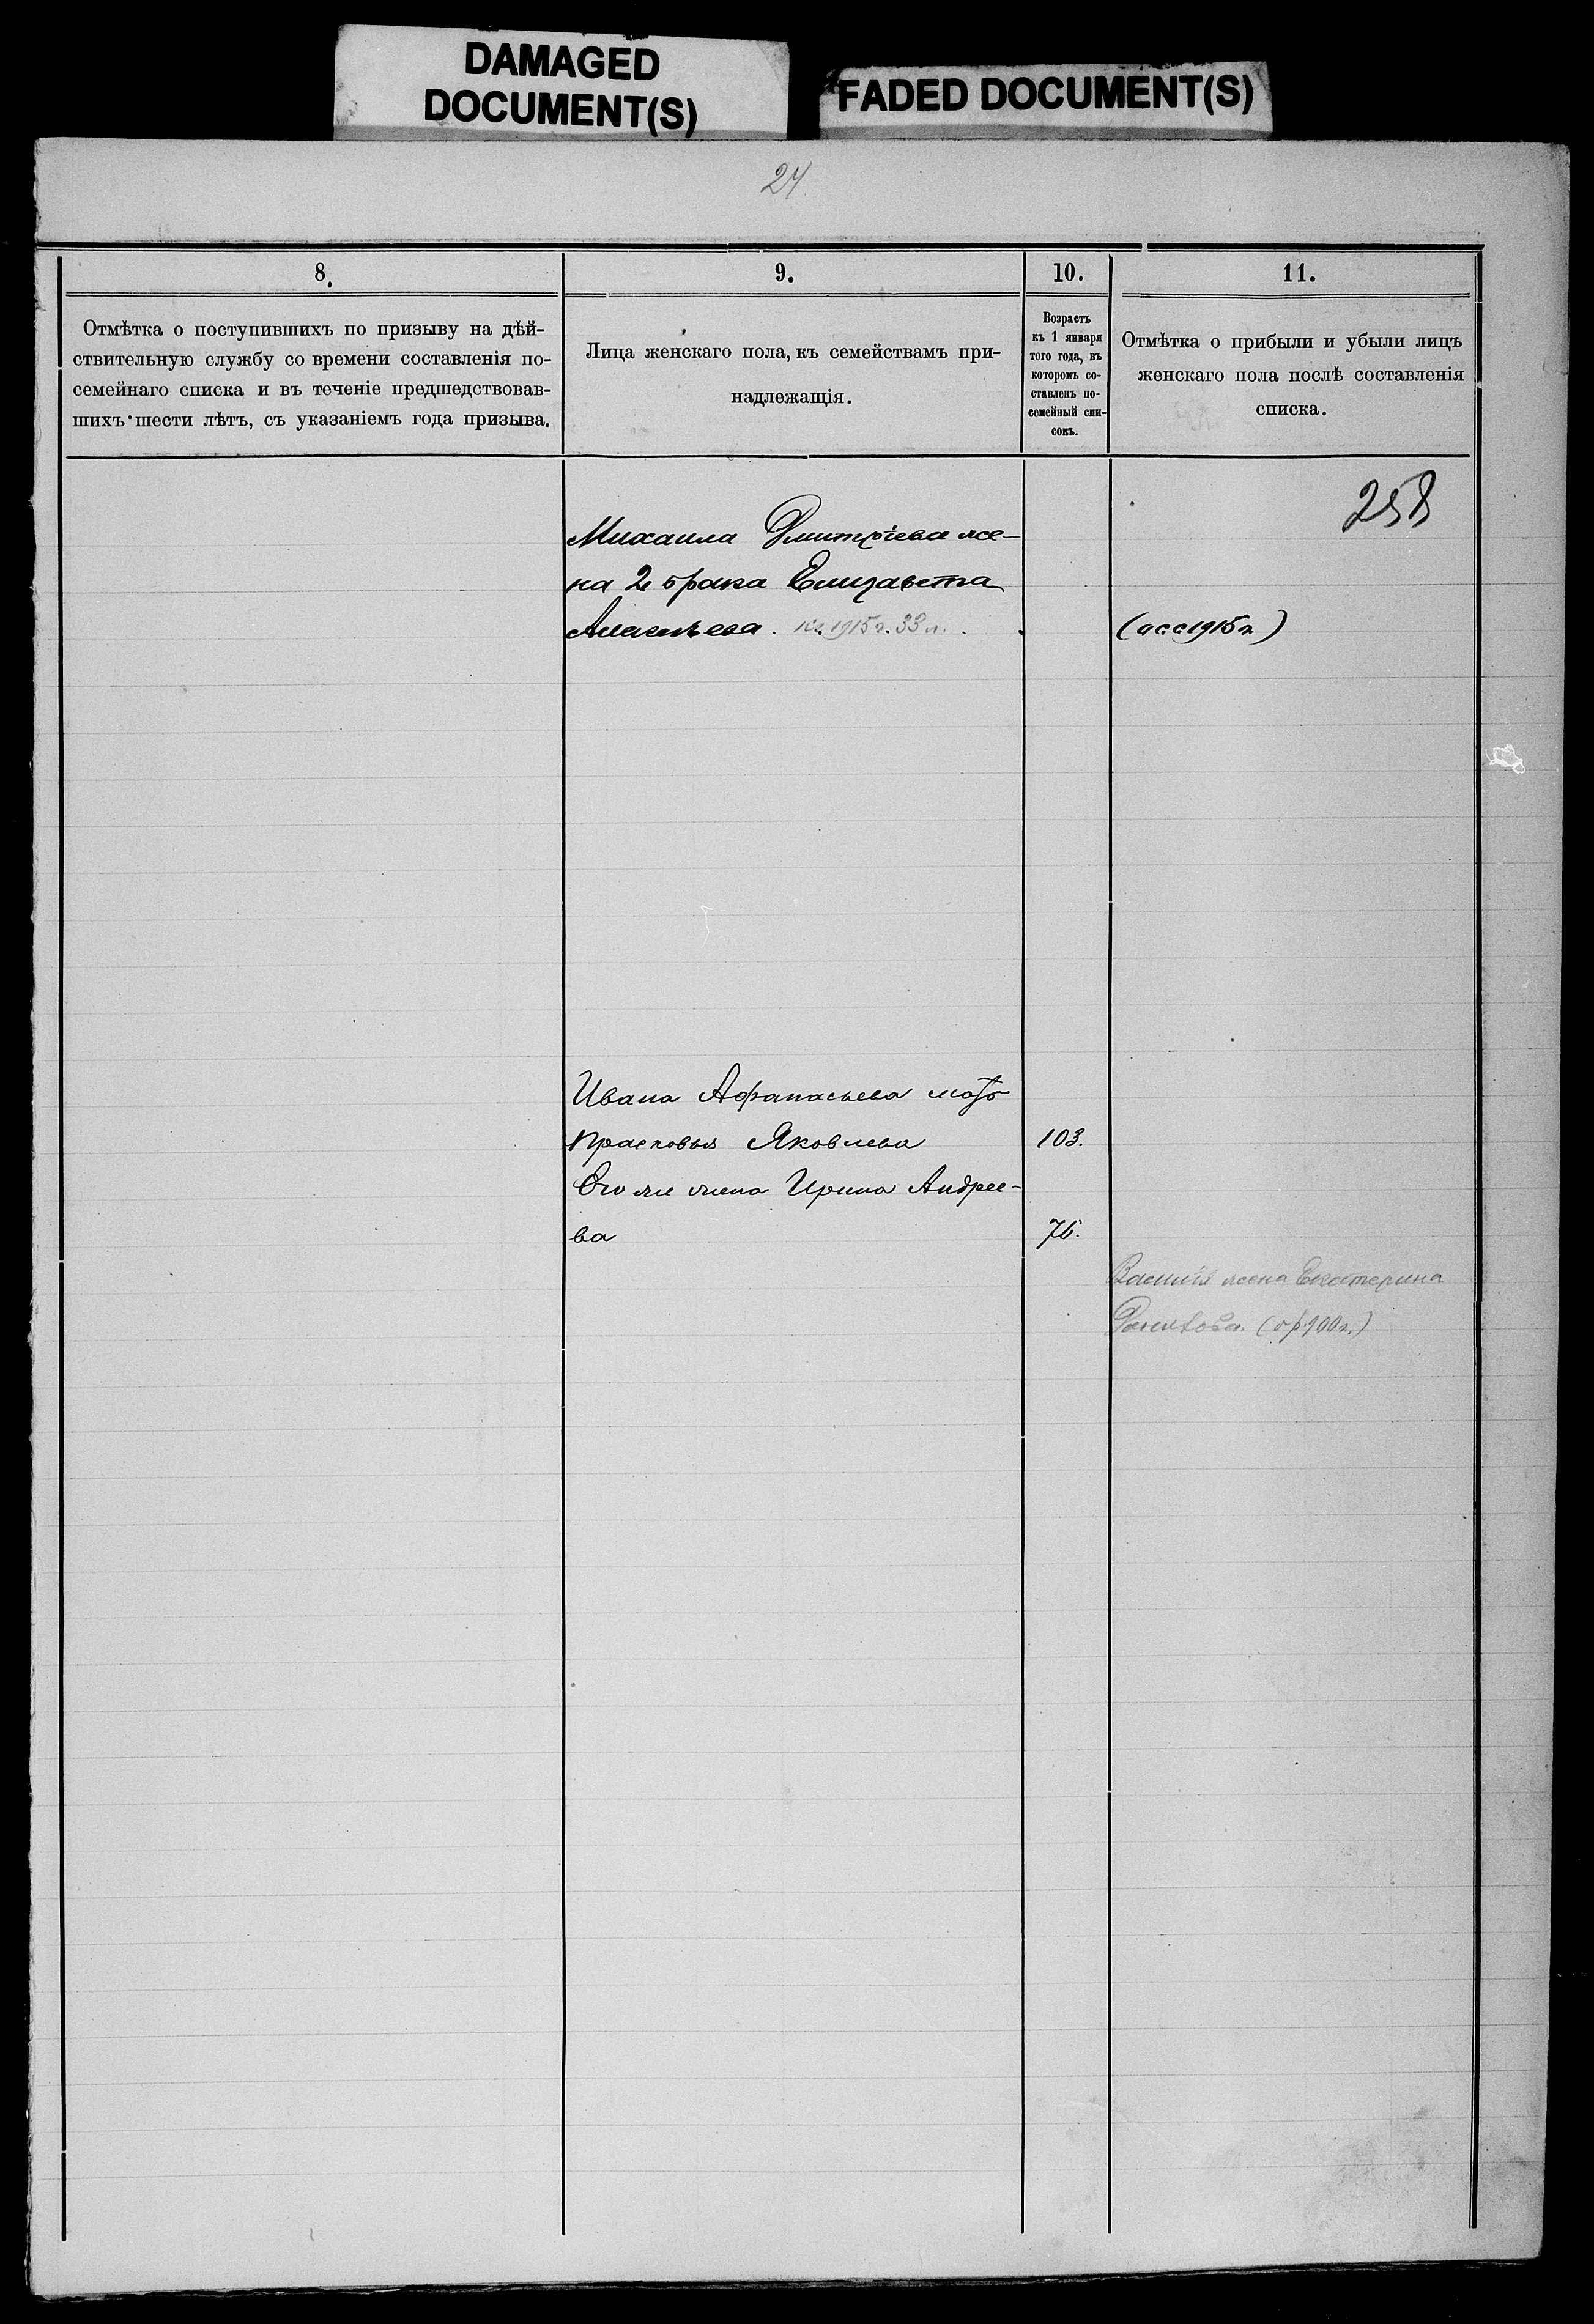 DAMAGED
DOCUMENT(S)
FADED DOCUMENT(S)
24
8.
Отмѣтка о поступившихъ по призыву на дѣй-
ствительную службу со времени составленія по-
семейнаго списка и въ теченіе предшедствовав-
шихъ шести лѣтъ, съ указаніемъ года призыва.
9.
Лица женскаго пола, къ семействамъ при-
надлежащія.
10.
Возрастъ
къ 1 января
того года, въ
которомъ со-
ставленъ по-
семейный спи-
сокъ.
11.
Отмѣтка о прибыли и убыли лицъ
женскаго пола послѣ составленія
списка.
258
Михаила Дмитріева же-
на 2 брака Елизавета
Алексѣева. 1915 г. 33 л.
1915 г)
Ивана Афанасьева мать
Прасковья Яковлева 103.
Его же жена Ирина Андрее-
ва 76.
Василія жена Екатерина
(бр 900 г.)